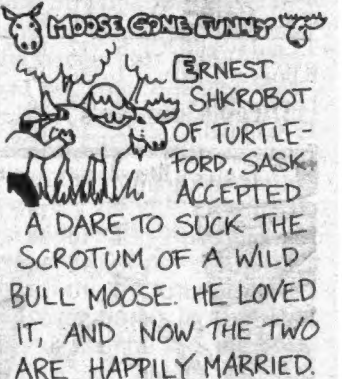 MOOSE GONE FUNNY
ERNEST
SHKROBOT
OF TURTLE-
FORD, SASK.
ACCEPTED
A DARE TO SUCK THE
SCROTUM OF A WILD
BULL MOOSE. HE LOVED
IT, AND NOW THE TWO
ARE HAPPILY MARRIED.